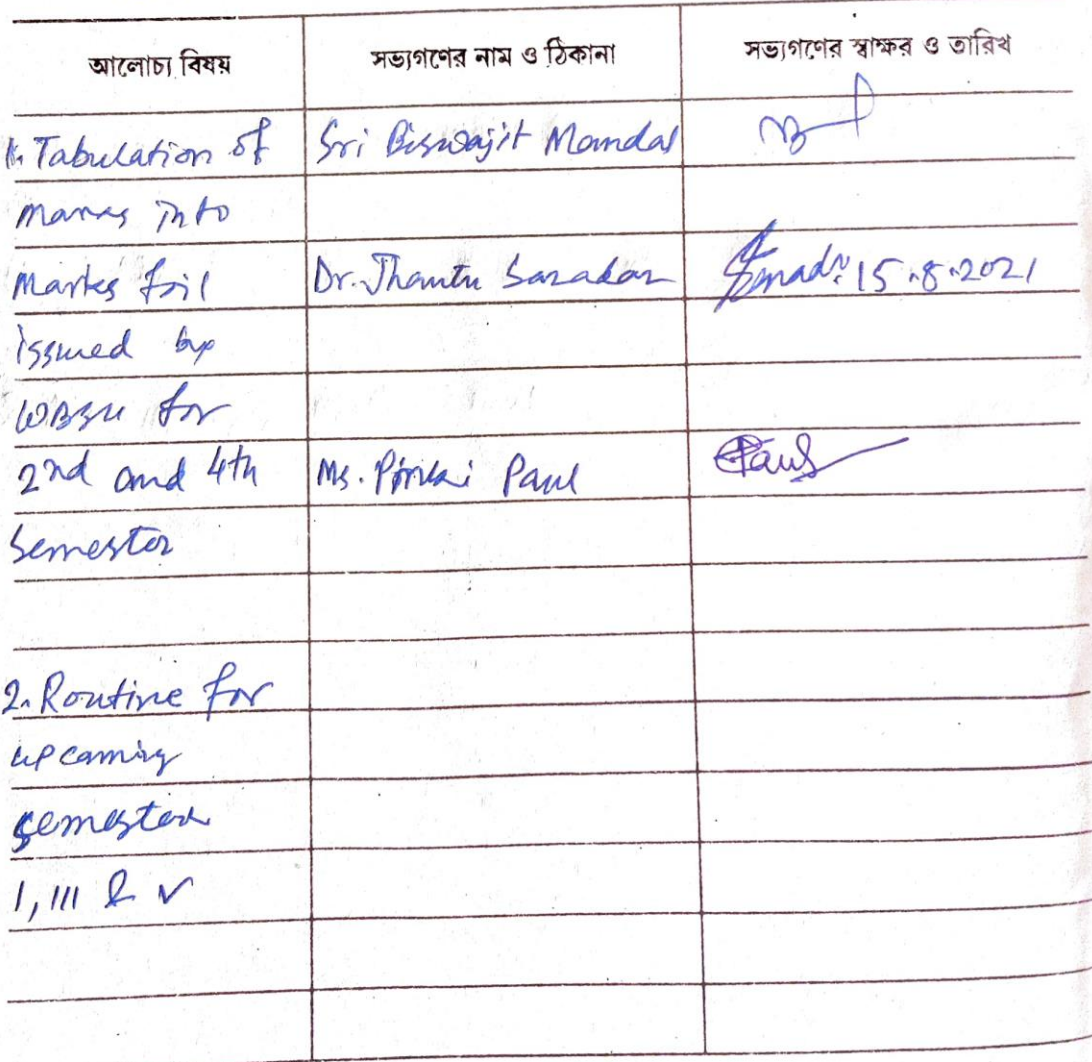 আলোচ্য বিষয় সভ্যগণের নাম ও ঠিকানা সভ্যগণের স্বাক্ষর ও তারিখ
1. Tabulation of Sri Biswajit Mondal
marks into
Marks foil Dr. Jhantu Sarakar 15.8.2021
issued by
WBSU for
2nd and 4th Ms. Pinki Paul Paul
Semester
2. Routine for
upcoming
semester
I, III & V